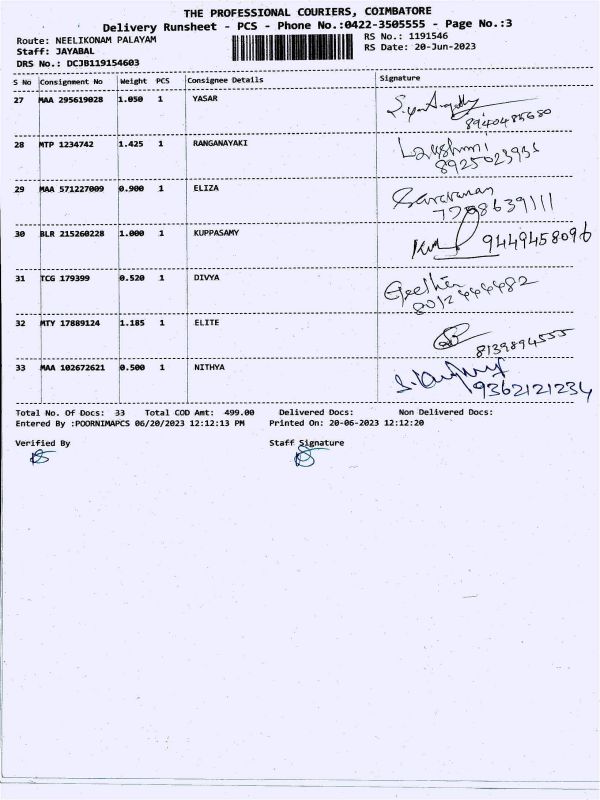 THE PROFESSIONAL COURIERS, COIMBATORE
Delivery Runsheet - PCS - Phone No.:0422-3505555 - Page No.:3
Route: NEELIKONAM PALAYAM
RS No.: 1191546
Staff: JAYABAL
RS Date: 20-Jun-2023
DRS No.: DCJB119154603
S No Consignment No Weight PCS Consignee Details Signature
27 MAA 295619028 1.050 1 YASAR
8940485680
28 MTP 1234742 1.425 1 RANGANAYAKI Lakshmi
8925023935
29 MAA 571227009 0.900 1 ELIZA Saravanan
7708639111
30 BLR 215260228 1.000 1 KUPPASAMY 9449458096
31 TCG 179399 0.520 1 DIVYA Geetha
8012444482
32 MTY 17889124 1.185 1 ELITE
8139894555
33 MAA 102672621 0.500 1 NITHYA
9362121234
Total No. Of Docs: 33 Total COD Amt: 499.00 Delivered Docs: Non Delivered Docs:
Entered By :POORNIMAPCS 06/20/2023 12:12:13 PM Printed On: 20-06-2023 12:12:20
Verified By Staff Signature